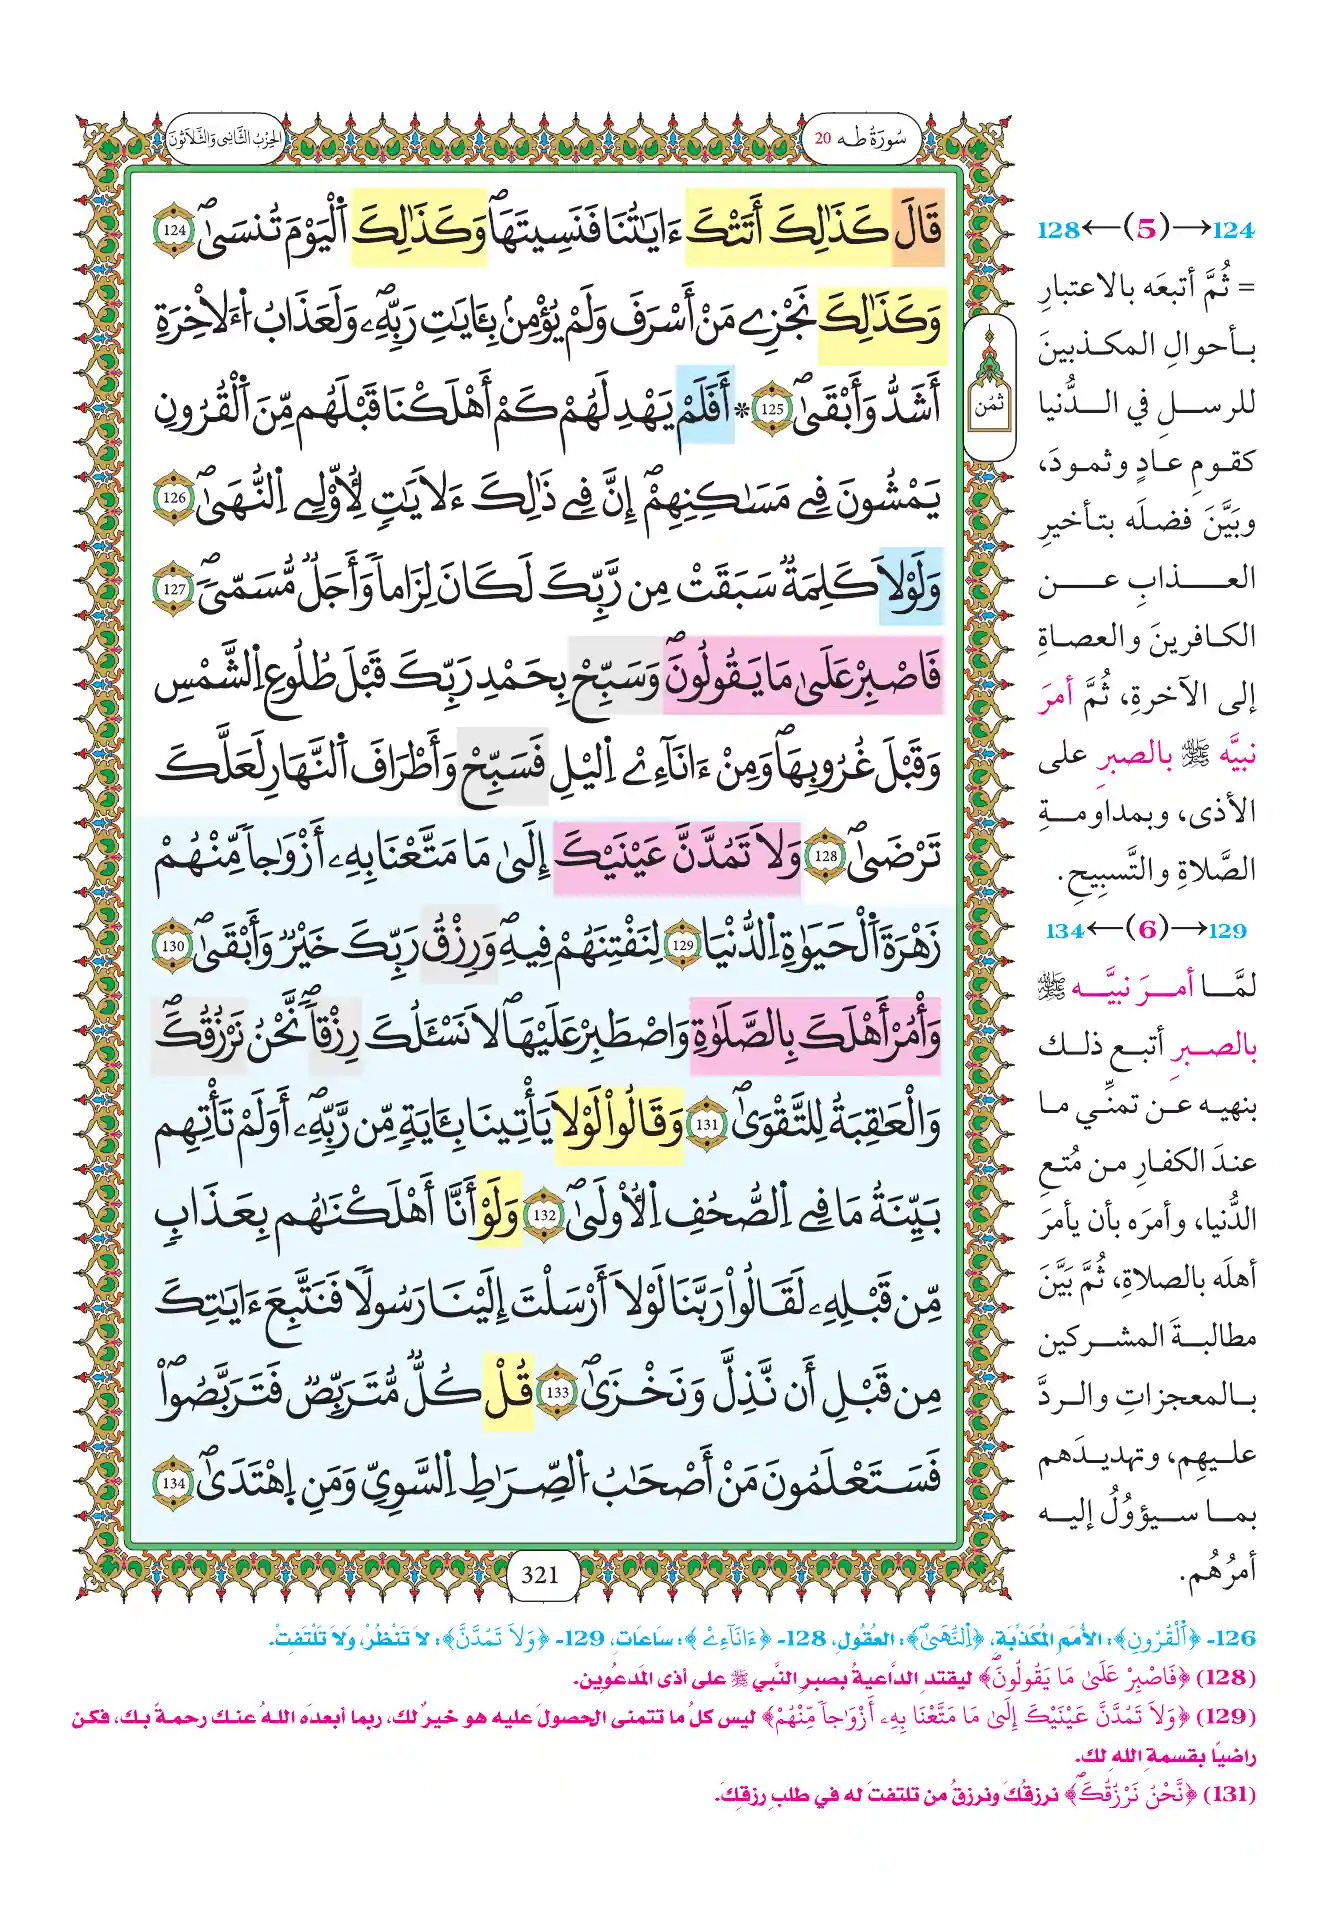 سُورَةُ طه 20
الحِزبُ الثَّانِي وَالثَّلَاثُونَ
قَالَ كَذَٰلِكَ أَتَتْكَ ءَايَٰتُنَا فَنَسِيتَهَاۖ وَكَذَٰلِكَ اَ۬لْيَوْمَ تُنسَىٰۖ 124
وَكَذَٰلِكَ نَجْزِے مَنْ أَسْرَفَ وَلَمْ يُؤْمِنۢ بِـَٔايَٰتِ رَبِّهِۦۖ وَلَعَذَابُ اُ۬لَاخِرَةِ
أَشَدُّ وَأَبْقَىٰۖ 125 * أَفَلَمْ يَهْدِ لَهُمْ كَمْ أَهْلَكْنَا قَبْلَهُم مِّنَ اَ۬لْقُرُونِ
يَمْشُونَ فِے مَسَٰكِنِهِمْۖ إِنَّ فِے ذَٰلِكَ ءَلَايَٰتٖ لِّأُوْلِے اِ۬لنُّهَىٰۖ 126
وَلَوْلَا كَلِمَةٞ سَبَقَتْ مِن رَّبِّكَ لَكَانَ لِزَاماٗ وَأَجَلٞ مُّسَمّىٗۖ 127
فَاصْبِرْ عَلَىٰ مَا يَقُولُونَۖ وَسَبِّحْ بِحَمْدِ رَبِّكَ قَبْلَ طُلُوعِ اِ۬لشَّمْسِ
وَقَبْلَ غُرُوبِهَاۖ وَمِنْ ءَانَآءِےْ اِ۬ليْلِ فَسَبِّحْ وَأَطْرَافَ اَ۬لنَّهَارِ لَعَلَّكَ
تَرْضَىٰۖ 128 وَلَا تَمُدَّنَّ عَيْنَيْكَ إِلَىٰ مَا مَتَّعْنَا بِهِۦ أَزْوَٰجاٗ مِّنْهُمْ
زَهْرَةَ اَ۬لْحَيَوٰةِ اِ۬لدُّنْيَا 129 لِنَفْتِنَهُمْ فِيهِۖ وَرِزْقُ رَبِّكَ خَيْرٞ وَأَبْقَىٰۖ 130
وَأْمُرْ أَهْلَكَ بِالصَّلَوٰةِ وَاصْطَبِرْ عَلَيْهَاۖ لَا نَسْـَٔلُكَ رِزْقاٗۖ نَّحْنُ نَرْزُقُكَۖ
وَالْعَٰقِبَةُ لِلتَّقْوَىٰۖ 131 وَقَالُواْ لَوْلَا يَأْتِينَا بِـَٔايَةٖ مِّن رَّبِّهِۦۖ أَوَلَمْ تَأْتِهِم
بَيِّنَةُ مَا فِے اِ۬لصُّحُفِ اِ۬لُاولَىٰۖ 132 وَلَوْ أَنَّا أَهْلَكْنَٰهُم بِعَذَابٖ
مِّن قَبْلِهِۦ لَقَالُواْ رَبَّنَا لَوْلَا أَرْسَلْتَ إِلَيْنَا رَسُولاٗ فَنَتَّبِعَ ءَايَٰتِكَ
مِن قَبْلِ أَن نَّذِلَّ وَنَخْزَىٰۖ 133 قُلْ كُلّٞ مُّتَرَبِّصٞ فَتَرَبَّصُواْۖ
فَسَتَعْلَمُونَ مَنْ أَصْحَٰبُ اُ۬لصِّرَٰطِ اِ۬لسَّوِيِّ وَمَنِ اِ۪هْتَدَىٰۖ 134
ثُمُن
321
124→(5)←128
= ثُمَّ أتبعَه بالاعتبارِ
بأحوالِ المكذبينَ
للرسلِ في الدُّنيا
كقومِ عادٍ وثمودَ،
وبَيَّنَ فضلَه بتأخيرِ
العذابِ عن
الكافرينَ والعصاةِ
إلى الآخرةِ، ثُمَّ أمرَ
نبيَّه ﷺ بالصبرِ على
الأذى، وبمداومةِ
الصَّلاةِ والتَّسبيحِ.
129→(6)←134
لمَّا أمرَ نبيَّه ﷺ
بالصبرِ أتبع ذلك
بنهيه عن تمنِّي ما
عندَ الكفارِ من مُتعِ
الدُّنيا، وأمرَه بأن يأمرَ
أهلَه بالصلاةِ، ثُمَّ بَيَّنَ
مطالبةَ المشركين
بالمعجزاتِ والردَّ
عليهِم، وتهديدَهم
بما سيؤوُلُ إليه
أمرُهُم.
126- ﴿اَ۬لْقُرُونِ﴾: الأُمَمِ المُكَذِّبَةِ، ﴿اِ۬لنُّهَىٰۖ﴾: العُقُولِ، 128- ﴿ءَانَآءِےْ﴾: سَاعَاتِ، 129- ﴿وَلَا تَمُدَّنَّ﴾: لَا تَنْظُرْ، وَلَا تَلْتَفِتْ.
(128) ﴿فَاصْبِرْ عَلَىٰ مَا يَقُولُونَۖ﴾ ليقتدِ الدَّاعيةُ بصبرِ النَّبي ﷺ على أذى المَدعُوِين.
(129) ﴿وَلَا تَمُدَّنَّ عَيْنَيْكَ إِلَىٰ مَا مَتَّعْنَا بِهِۦ أَزْوَٰجاٗ مِّنْهُمْ﴾ ليس كلُ ما تتمنى الحصولَ عليه هو خيرٌ لك، ربما أبعدَه اللهُ عنك رحمةً بك، فكن
راضيًا بقسمةِ اللهِ لك.
(131) ﴿نَّحْنُ نَرْزُقُكَۖ﴾ نرزقُكَ ونرزقُ من تلتفتَ له في طلبِ رزقِكَ.